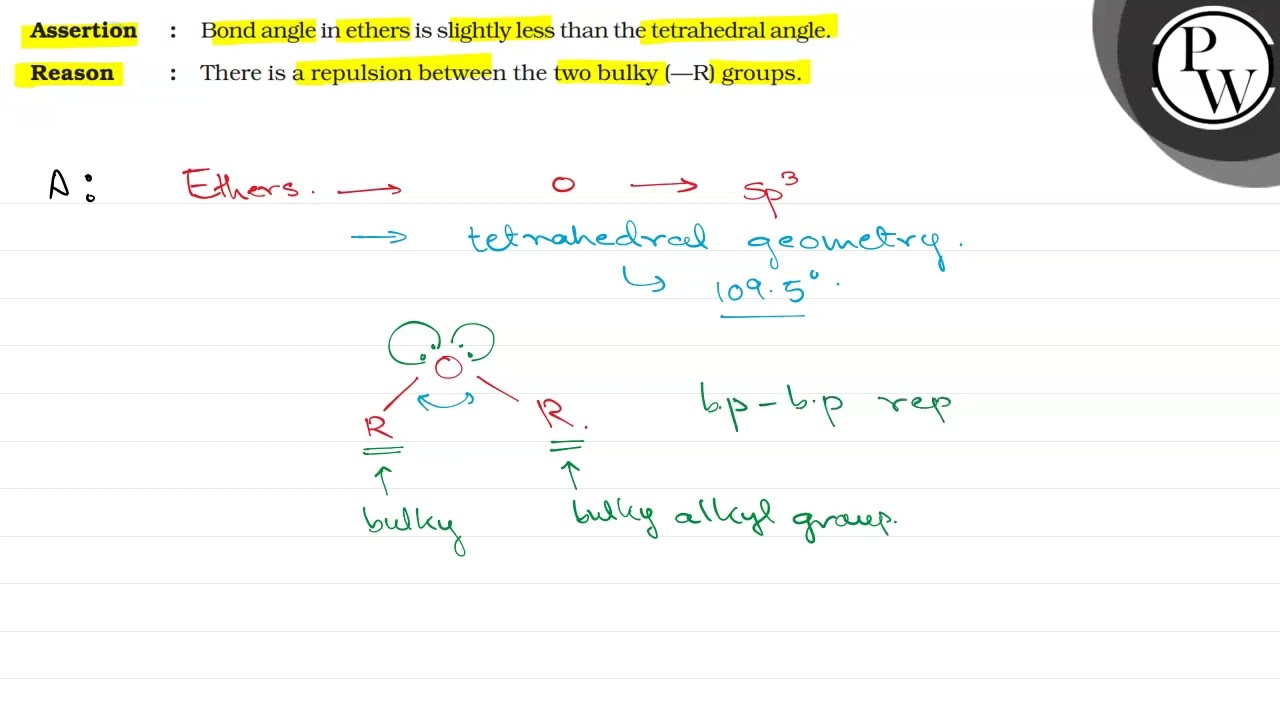 Assertion : Bond angle in ethers is slightly less than the tetrahedral angle.
Reason : There is a repulsion between the two bulky (—R) groups.
PW
A: Ethers. → O → sp³
→ tetrahedral geometry.
↳ 109.5°.
O
R R.
b.p – b.p rep
bulky bulky alkyl group.